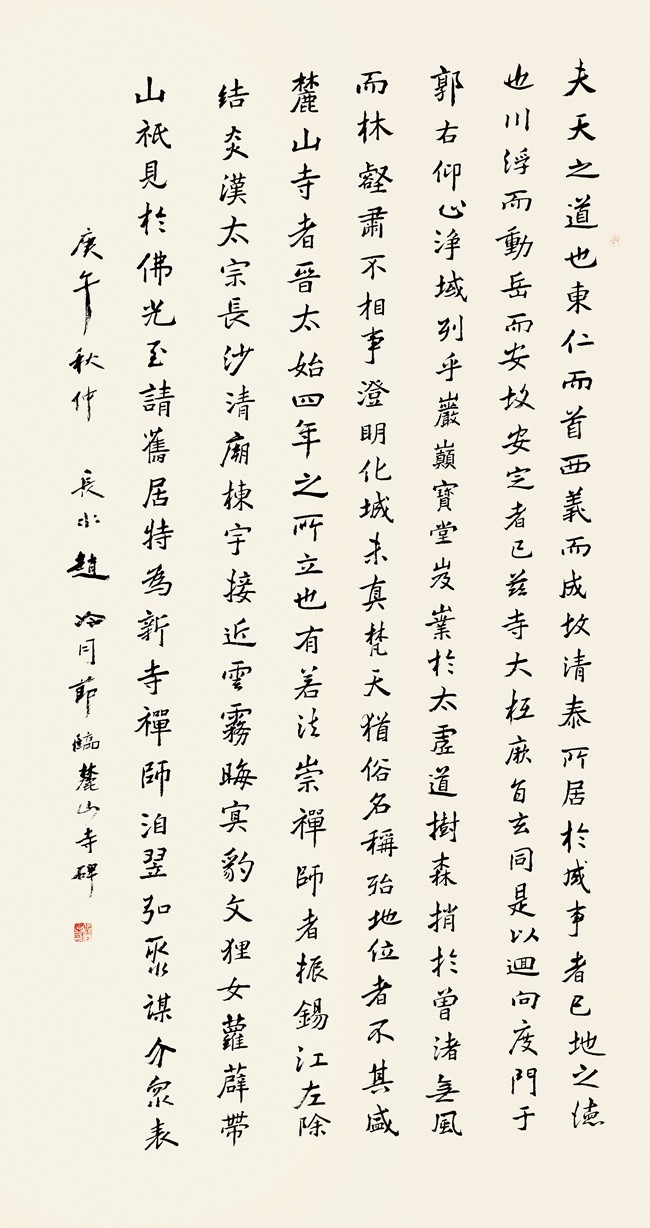 夫天之道也東仁而首西義而成故清泰所居於成事者已地之德
也川浮而動岳而安故安定者已茲寺大抵厥旨玄同是以迴向度門于
郭右仰止淨域列乎巖巔寶堂岌嶪於太虛道樹森捎於曾渚無風
而林壑肅不相事澄明化城未真梵天猶俗名稱殆地位者不其盛
麓山寺者晉太始四年之所立也有若法崇禪師者振錫江左除
結炎漢太宗長沙清廟棟宇接近雲霧晦冥豹文狸女蘿薜帶
山祇見於佛光至請舊居特為新寺禪師洎翌弘聚謀介眾表
庚午秋仲 長水趙冷月節臨麓山寺碑